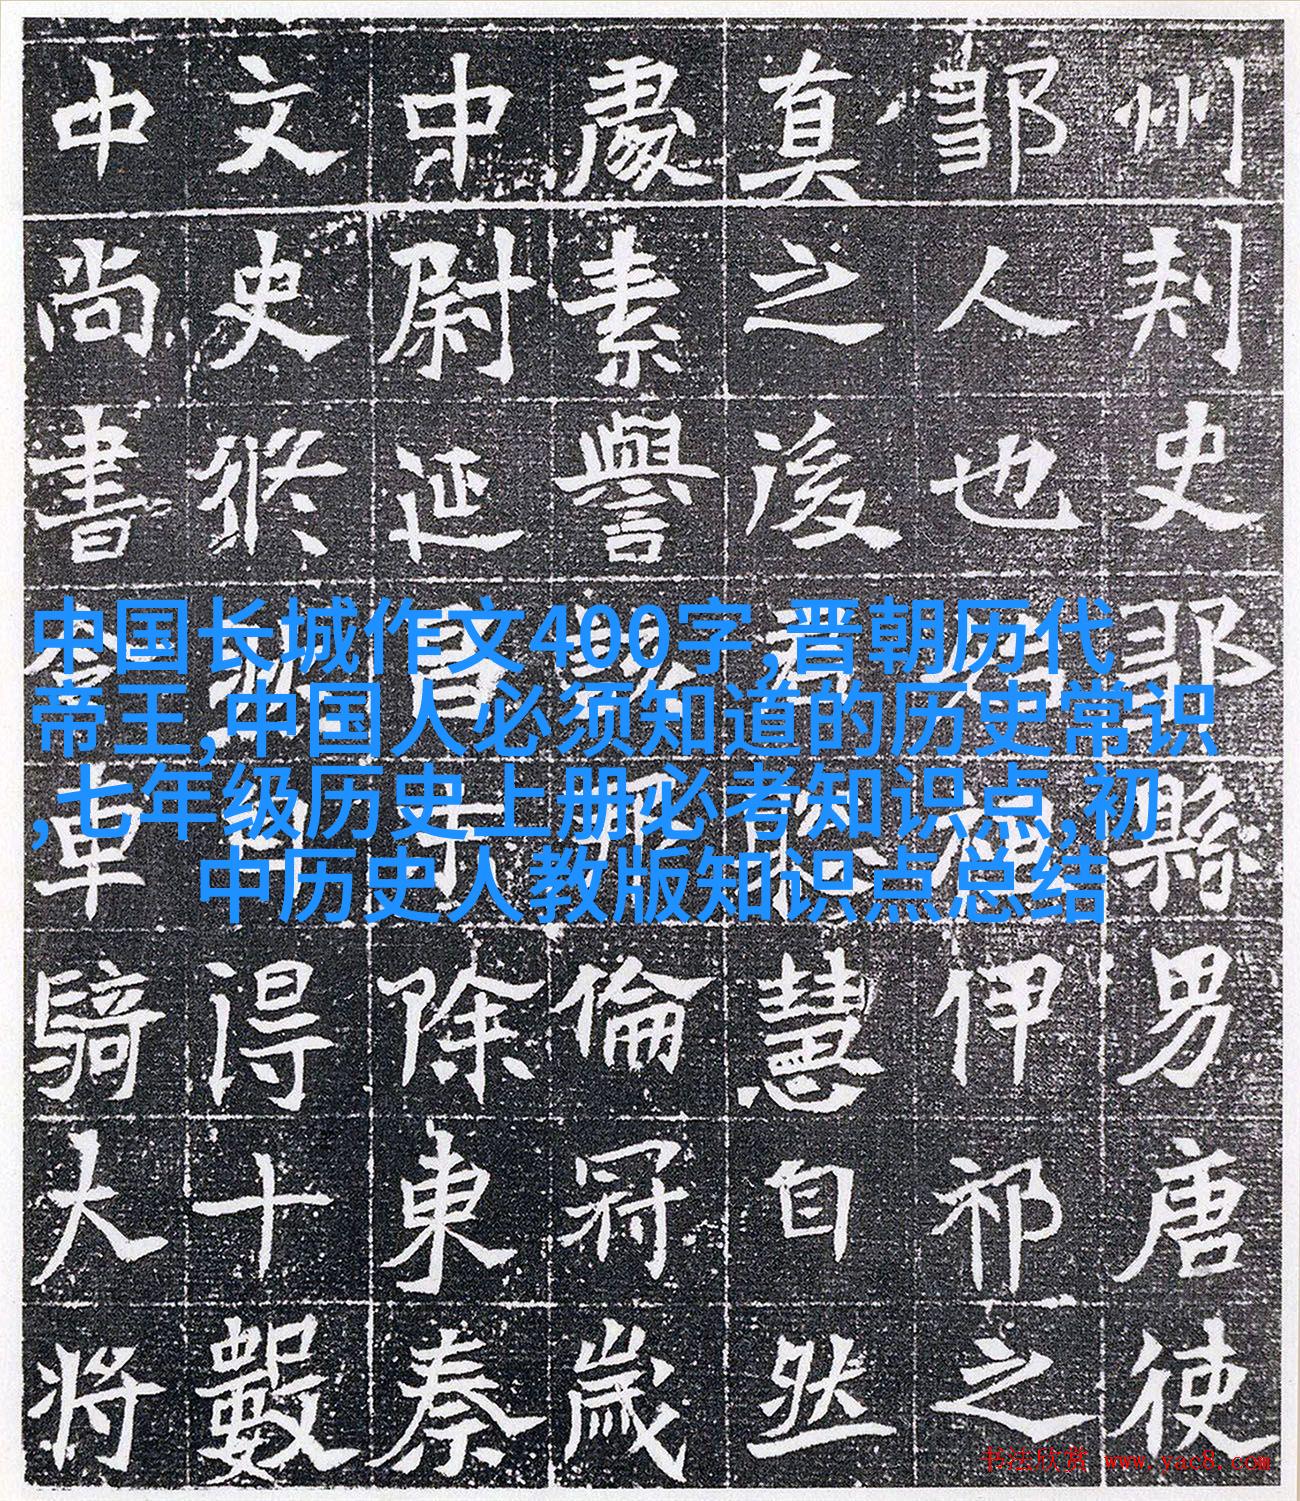 州刾史鄒縣男唐使
鄒人也伊祁之
真之後慧自然
處素譽倫冠歲
中尉延昌除東秦
文史修得十數
中尚書車騎大将
中国长城作文400字,晋朝历代
帝王,中国人必须知道的历史常识
,七年级历史上册必考知识点,初
中历史人教版知识点总结
书法欣赏 www.yac8.com